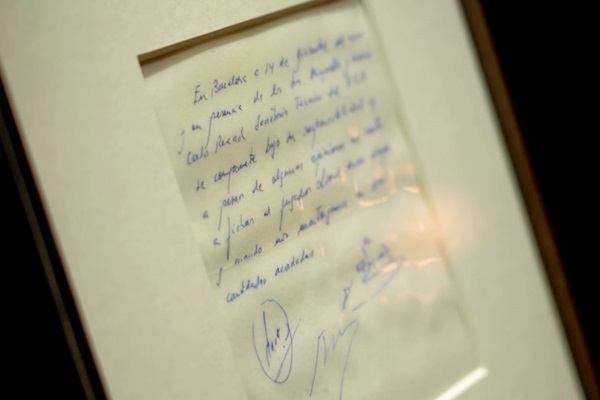 En Barcelona a 14 de diciembre del
y en presencia de los Minguella y Horacio
Carles Rexach Secretario Técnico del F.C.B
se compromete bajo su responsabilidad y
a pesar de algunas opiniones en contra
a fichar al jugador Lionel
y cuando nos mantengamos en las
cantidades acordadas.